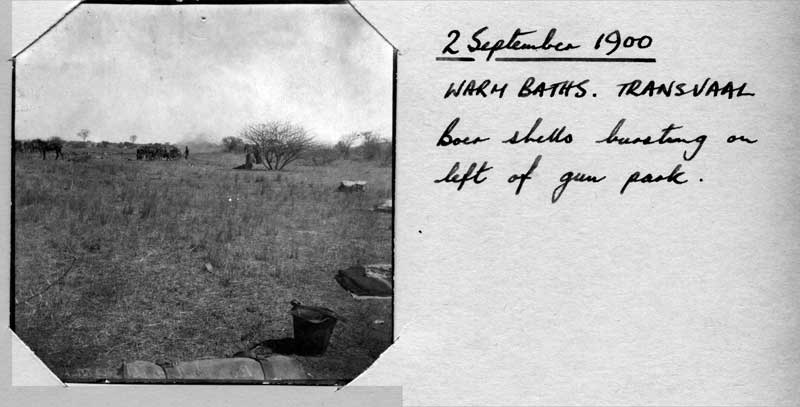 2 September 1900
WARM BATHS. TRANSVAAL
Boer shells bursting on
left of gun park.